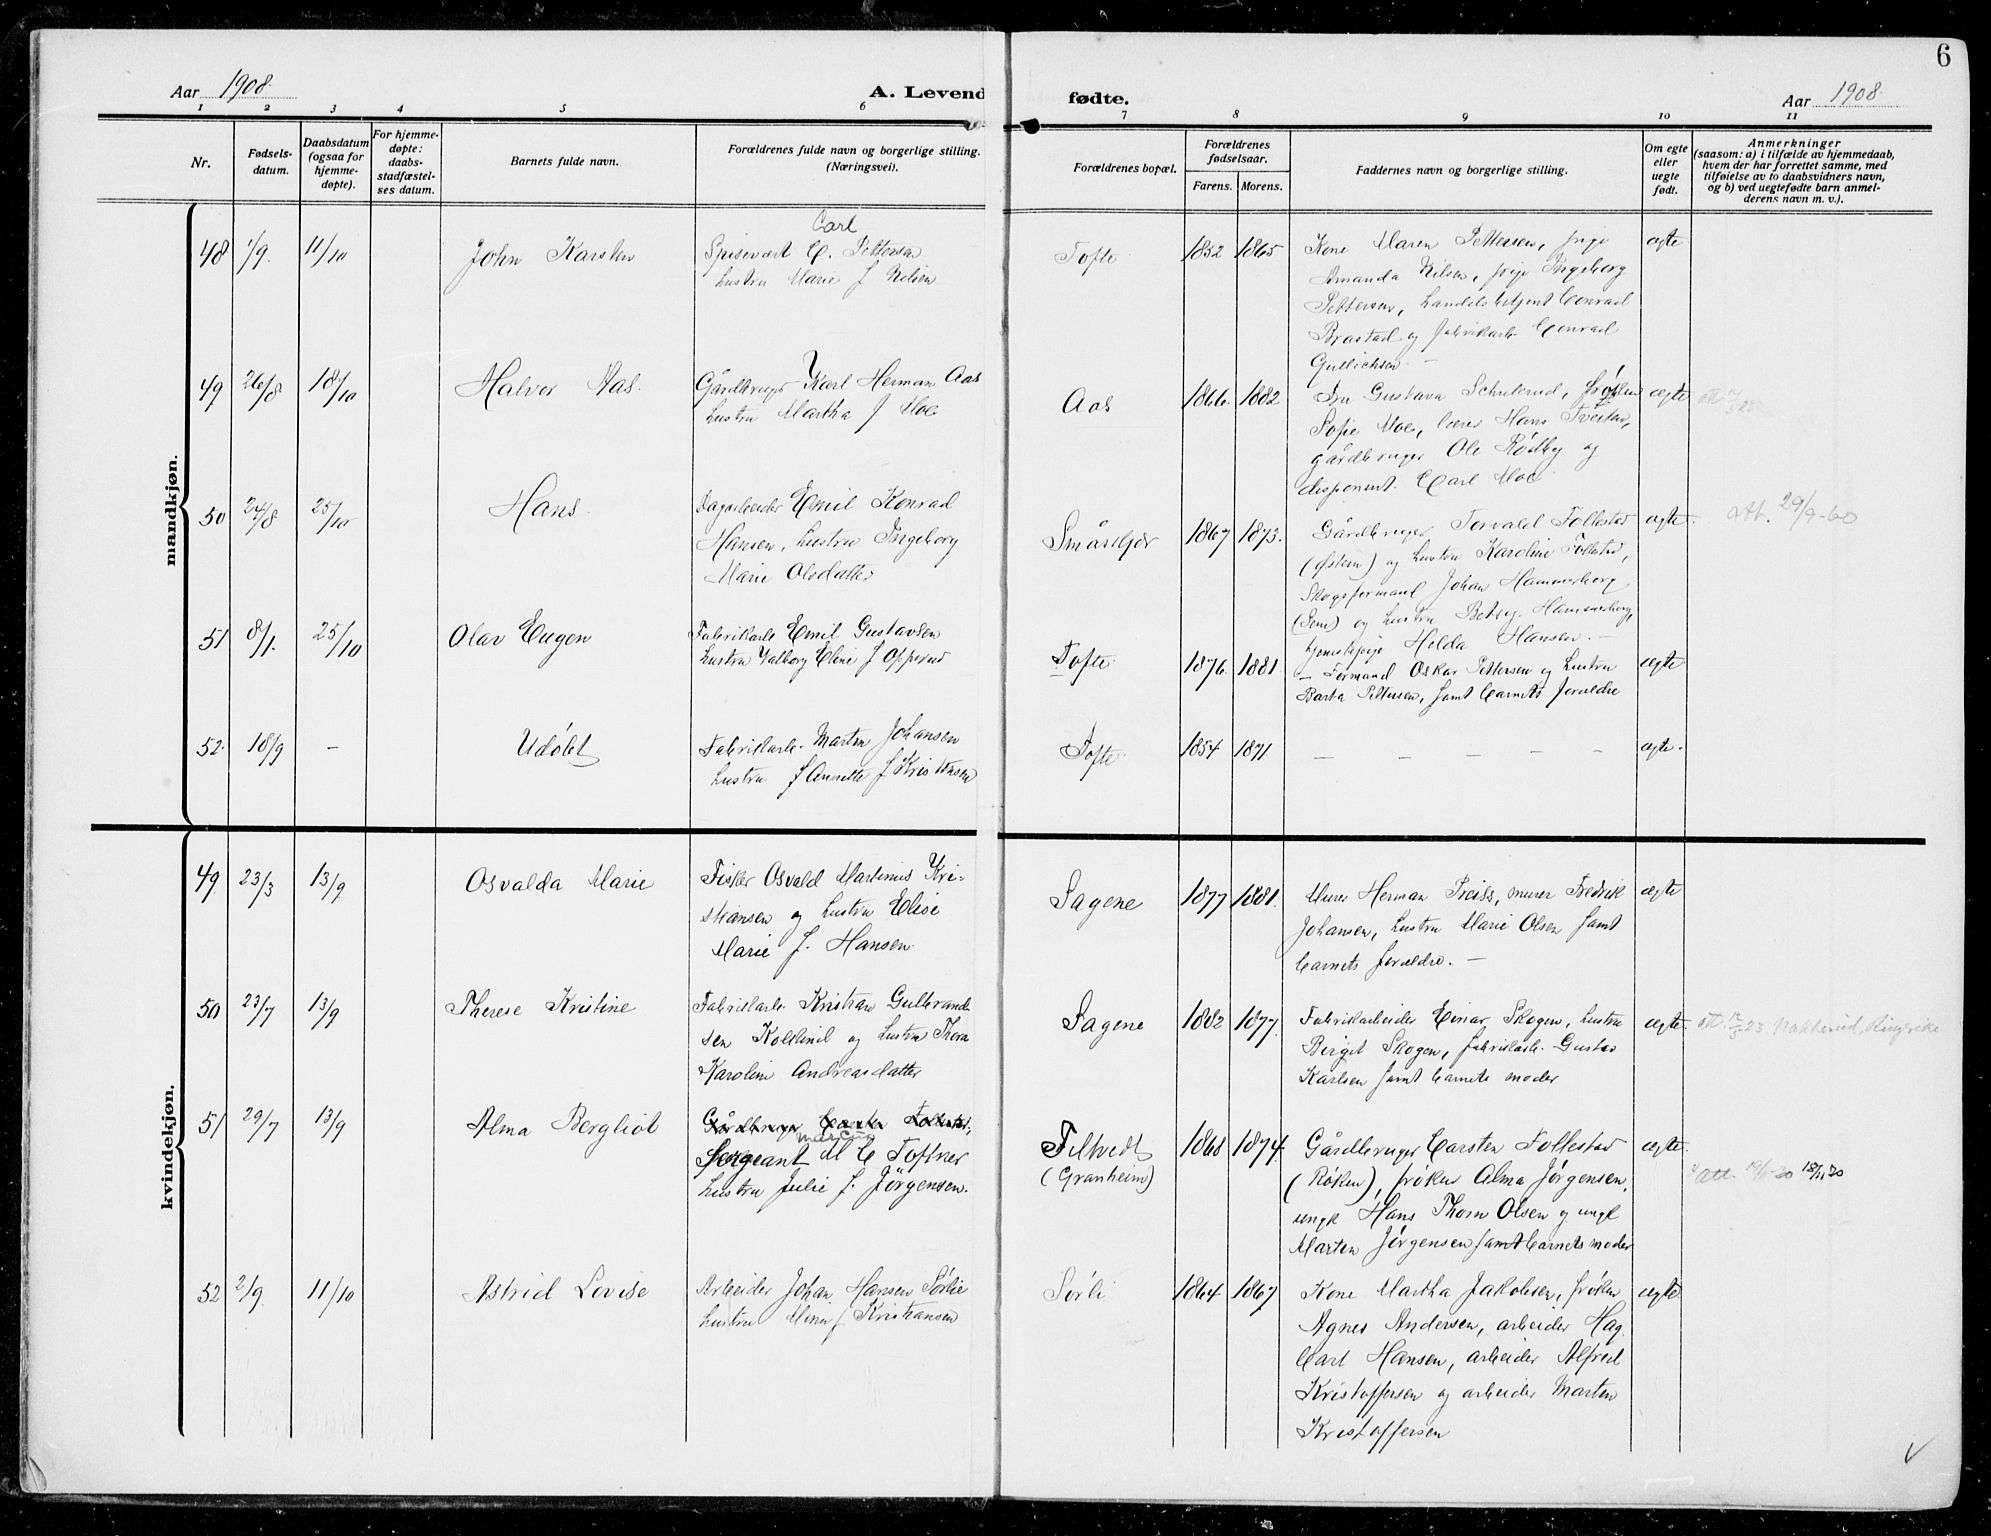 6
Aar 1908. A. Levende fødte. Aar 1908.
1 2 3 4 5 6 7 8 9 10 11
Nr.
Fødsels-
datum.
Daabsdatum
(ogsaa for
hjemme-
døpte).
For hjemme-
døpte:
daabs-
stadfæstel-
ses datum.
Barnets fulde navn.
Forældrenes fulde navn og borgerlige stilling.
(Næringsvei).
Forældrenes bopæl.
Forældrenes
fødselsaar.
Farens. Morens.
Faddernes navn og borgerlige stilling.
Om egte
eller
uegte
født.
Anmerkninger
(saasom: a) i tilfælde av hjemmedaab,
hvem der har forrettet samme, med
tilføielse av to daabsvidners navn,
og b) ved uegtefødte barn anmel-
derens navn m. v.).
mandkjøn.
48 1/9. 11/10 John Karsten
Carl
Spisevært C. Pettersen
hustru Marie f Nilsen
Tofte 1852 1865
Kone Maren Pettersen, frøk.
Amanda Nilsen, pige Ingeborg
Pettersen, handelsbetjent Conrad
Brastad og fabrikarb. Conrad
Gullichsen. –
ægte
49 26/8 18/10 Halvor Aas.
Gårdbruger Karl Herman Aas
hustru Martha f Moe
Aas 1866. 1882
Fru Gustava Schulerud, frøken
Sofie Moe, lærer Hans Tveiten,
gårdbruger Ole Rødby og
disponent Carl Moe
ægte
50 24/8 25/10 Hans
Dagarbeider Emil Konrad
Hansen, hustru Ingeborg
Marie Olsdatter
Småskjær 1867 1873.
Gårdbruger Torvald Follestad
(Østern) og hustru Karoline Follestad,
Skogsformand Johan Hammerborg
(Sem) og hustru Betsy Hammerborg,
tjenestepige Hilda Hansen. –
ægte. att. 29/9-60
51 8/1. 25/10 Olav Eugen
Fabrikarb. Emil Gustavsen
hustru Valborg Eline f Oppsud
Tofte 1876. 1881
– Formand Oskar Pettersen og hustru
Barta Pettersen, samt barnets forældre
ægte
52. 18/9 – Udøbt
Fabrikarb. Marten Johansen
hustru J Annette f Kristensen
Tofte 1854 1871
– – – – –
ægte.
kvindekjøn.
49. 23/3 13/9. Osvalda Marie
Fisker Osvald Martinus Kri-
stiansen og hustru Elise
Marie f. Hansen
Sagene 1877 1881.
Murer Herman Preiss, murer Fredrik
Johansen, hustru Marie Olsen samt
barnets forældre. –
ægte
50 23/7 13/9 Therese Kristine
Fabrikarb. Kristian Gulbrand-
sen Kolkinil og hustru Thora
Karoline Andreasdatter
Sagene 1882 1877.
Fabrikarbeider Einar Skogen, hustru
Berget Skogen, fabrikarb. Gustav
Karlsen samt barnets moder
ægte. att. 12/3 23 Nakkerud, Ringerike
51 29/7 13/9 Alma Bergliot
Gårdbruger Carsten Follestad,
Marcus
Sergeant M C Toftner
hustru Julie f. Jörgensen.
Filtvedt
(Granheim)
1868 1874.
Gårdbruger Carsten Follestad
(Røken), frøken Alma Jørgensen,
ungk Hans Thorn Olsen og ungk
Marten Jørgensen samt barnets moder
ægte.
52 2/9. 11/10 Astrid Lovise
Arbeider Johan Hansen Sørlie
hustru Mina f Kristiansen
Sørli 1864 1867
Kone Martha Jakobsen, frøken
Agnes Andersen, arbeider Hag.
Carl Hansen, arbeider Alfred
Kristoffersen og arbeider Marten
Kristoffersen
ægte